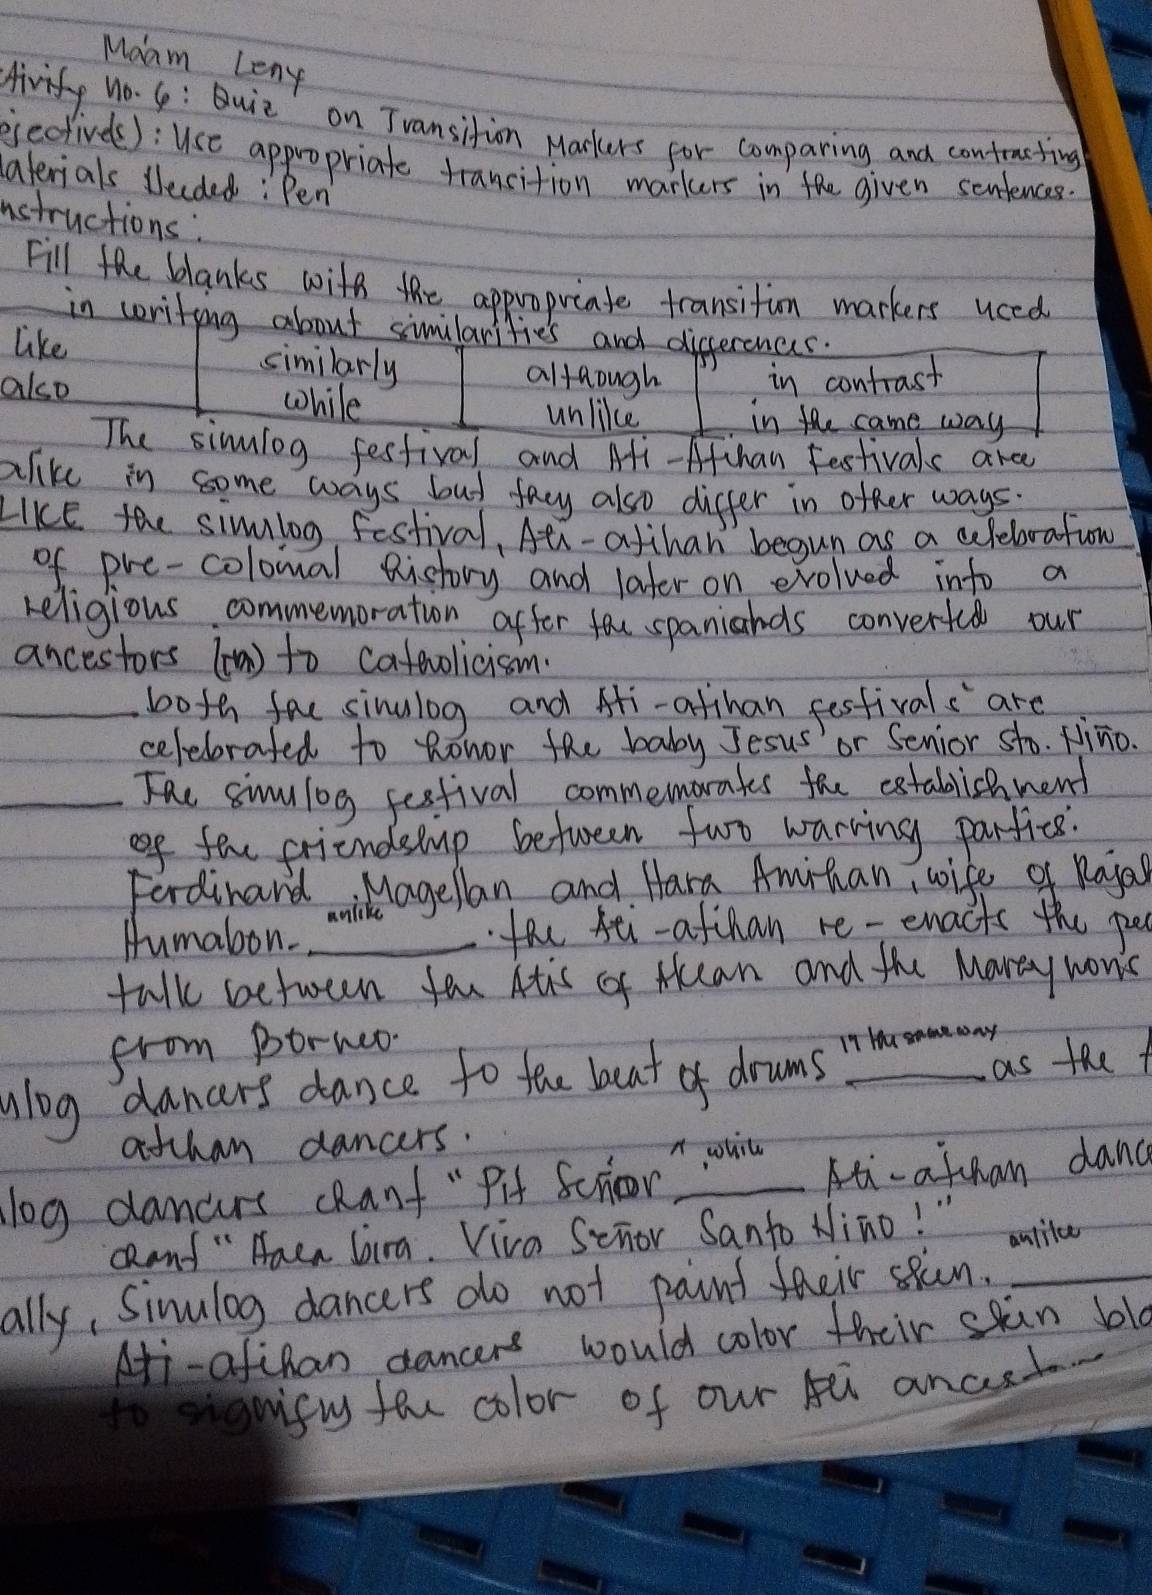 Ma'am Leny
tivity no. 6: Quiz on Transition Markers for comparing and contrasting
ejective(s): Use appropriate transition markers in the given sentences.
aterials Needed: Pen
nstructions:
Fill the blanks with the appropriate transition markers used
in writing about similarities and differences.
like similarly although in contrast
also while unlike in the same way
The sinulog festival and Ati-Atihan Festivals are
alike in some ways but they also differ in other ways.
LIKE the sinulog Festival, Ati-atihan begun as a celebration
of pre-colonial history and later on evolved into a
religious commemoration after the spaniards converted our
ancestors to Catholicism.
both the sinulog and Ati-atihan festivals are
celebrated to honor the baby Jesus or Senior Sto. Niño.
The sinulog festival commemorates the establishment
of the friendship between two warring parties:
Ferdinand Magellan and Hara Amihan, wife of Rajah
Humabon. unlike the Ati-atihan re-enacts the
talk between the Atis of Aklan and the
from Borneo.
ulog dancers dance to the beat of drums in the same way as the
atihan dancers.
log dancers chant "Pit Señor" while Ati-atihan dance
chant "Hala bira. Viva Señor Santo Niño!"
ally, Sinulog dancers do not paint their skin. unlike
Ati-atihan dancers would color their skin bla
to signify the color of our Ati